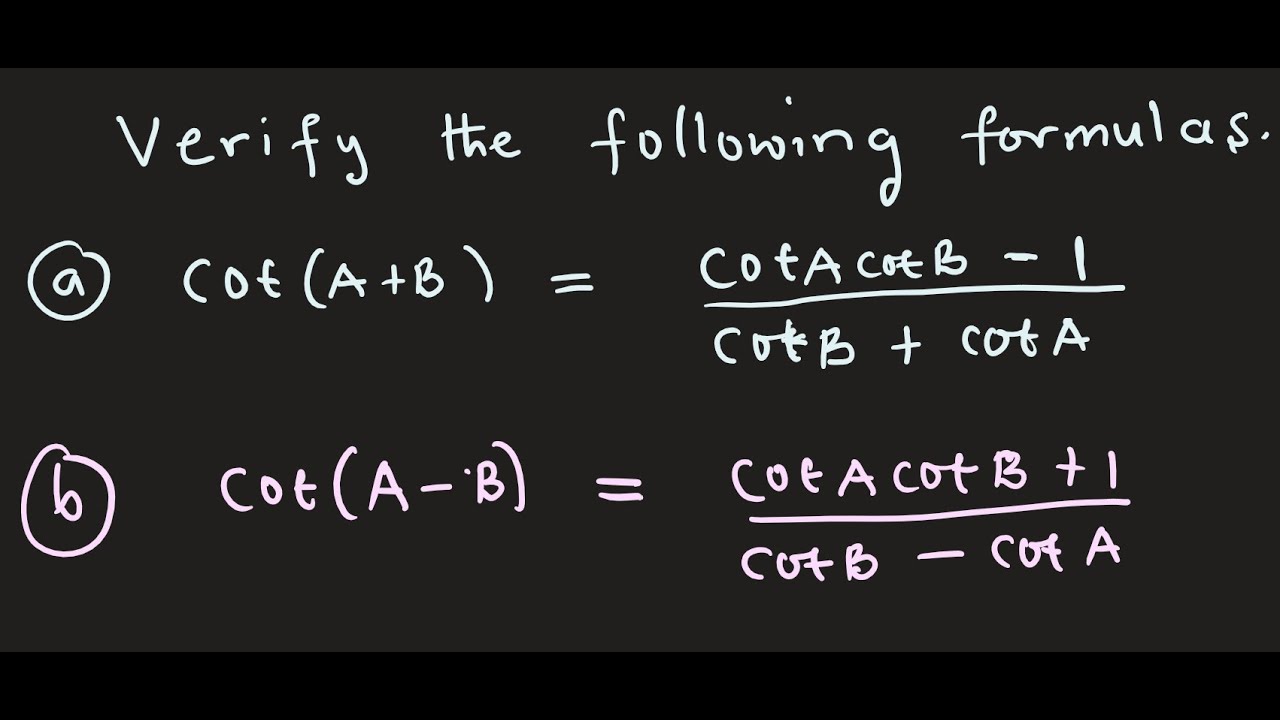 Verify the following formulas.
ⓐ cot(A+B) = cotA cotB - 1 / cotB + cotA
ⓑ cot(A-B) = cotA cotB + 1 / cotB - cotA